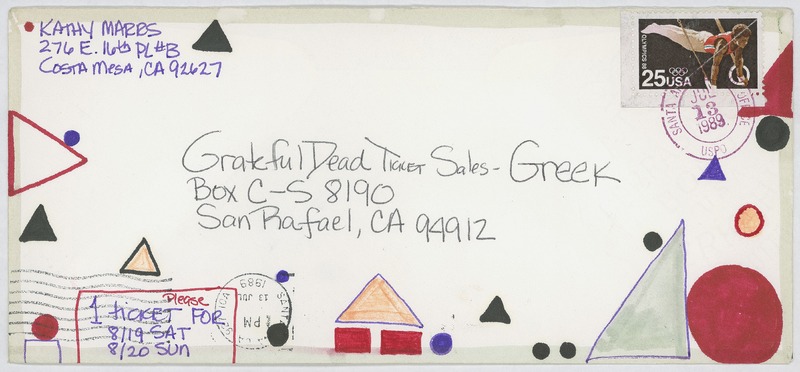 KATHY MARBS
276 E. 16th PL #B
COSTA MESA, CA 92627
OLYMPICS 88
25 USA
JUL
13
1989
USPO
Grateful Dead Ticket Sales - Greek
Box C-S 8190
San Rafael, CA 94912
Please
1 TICKET FOR
8/19 SAT
8/20 SUN
PM
13 JUL
1989